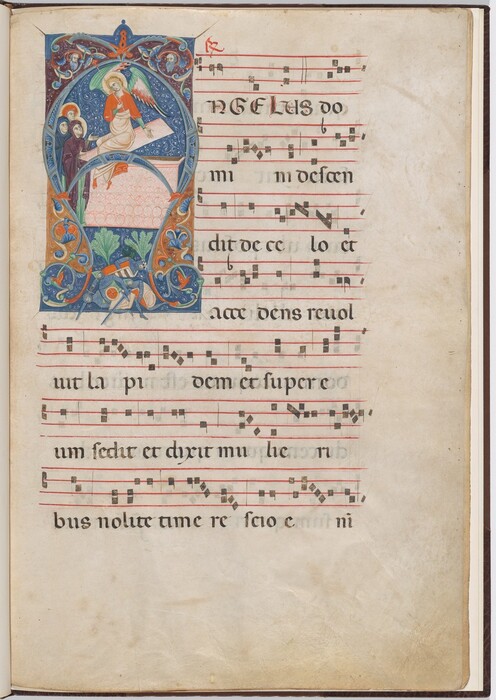 R
ANGELUS do
mi ni descen
dit de ce lo et
acce dens reuol
uit la pi dem et super e
um sedit et dixit mu lie ri
bus nolite time re scio e ni